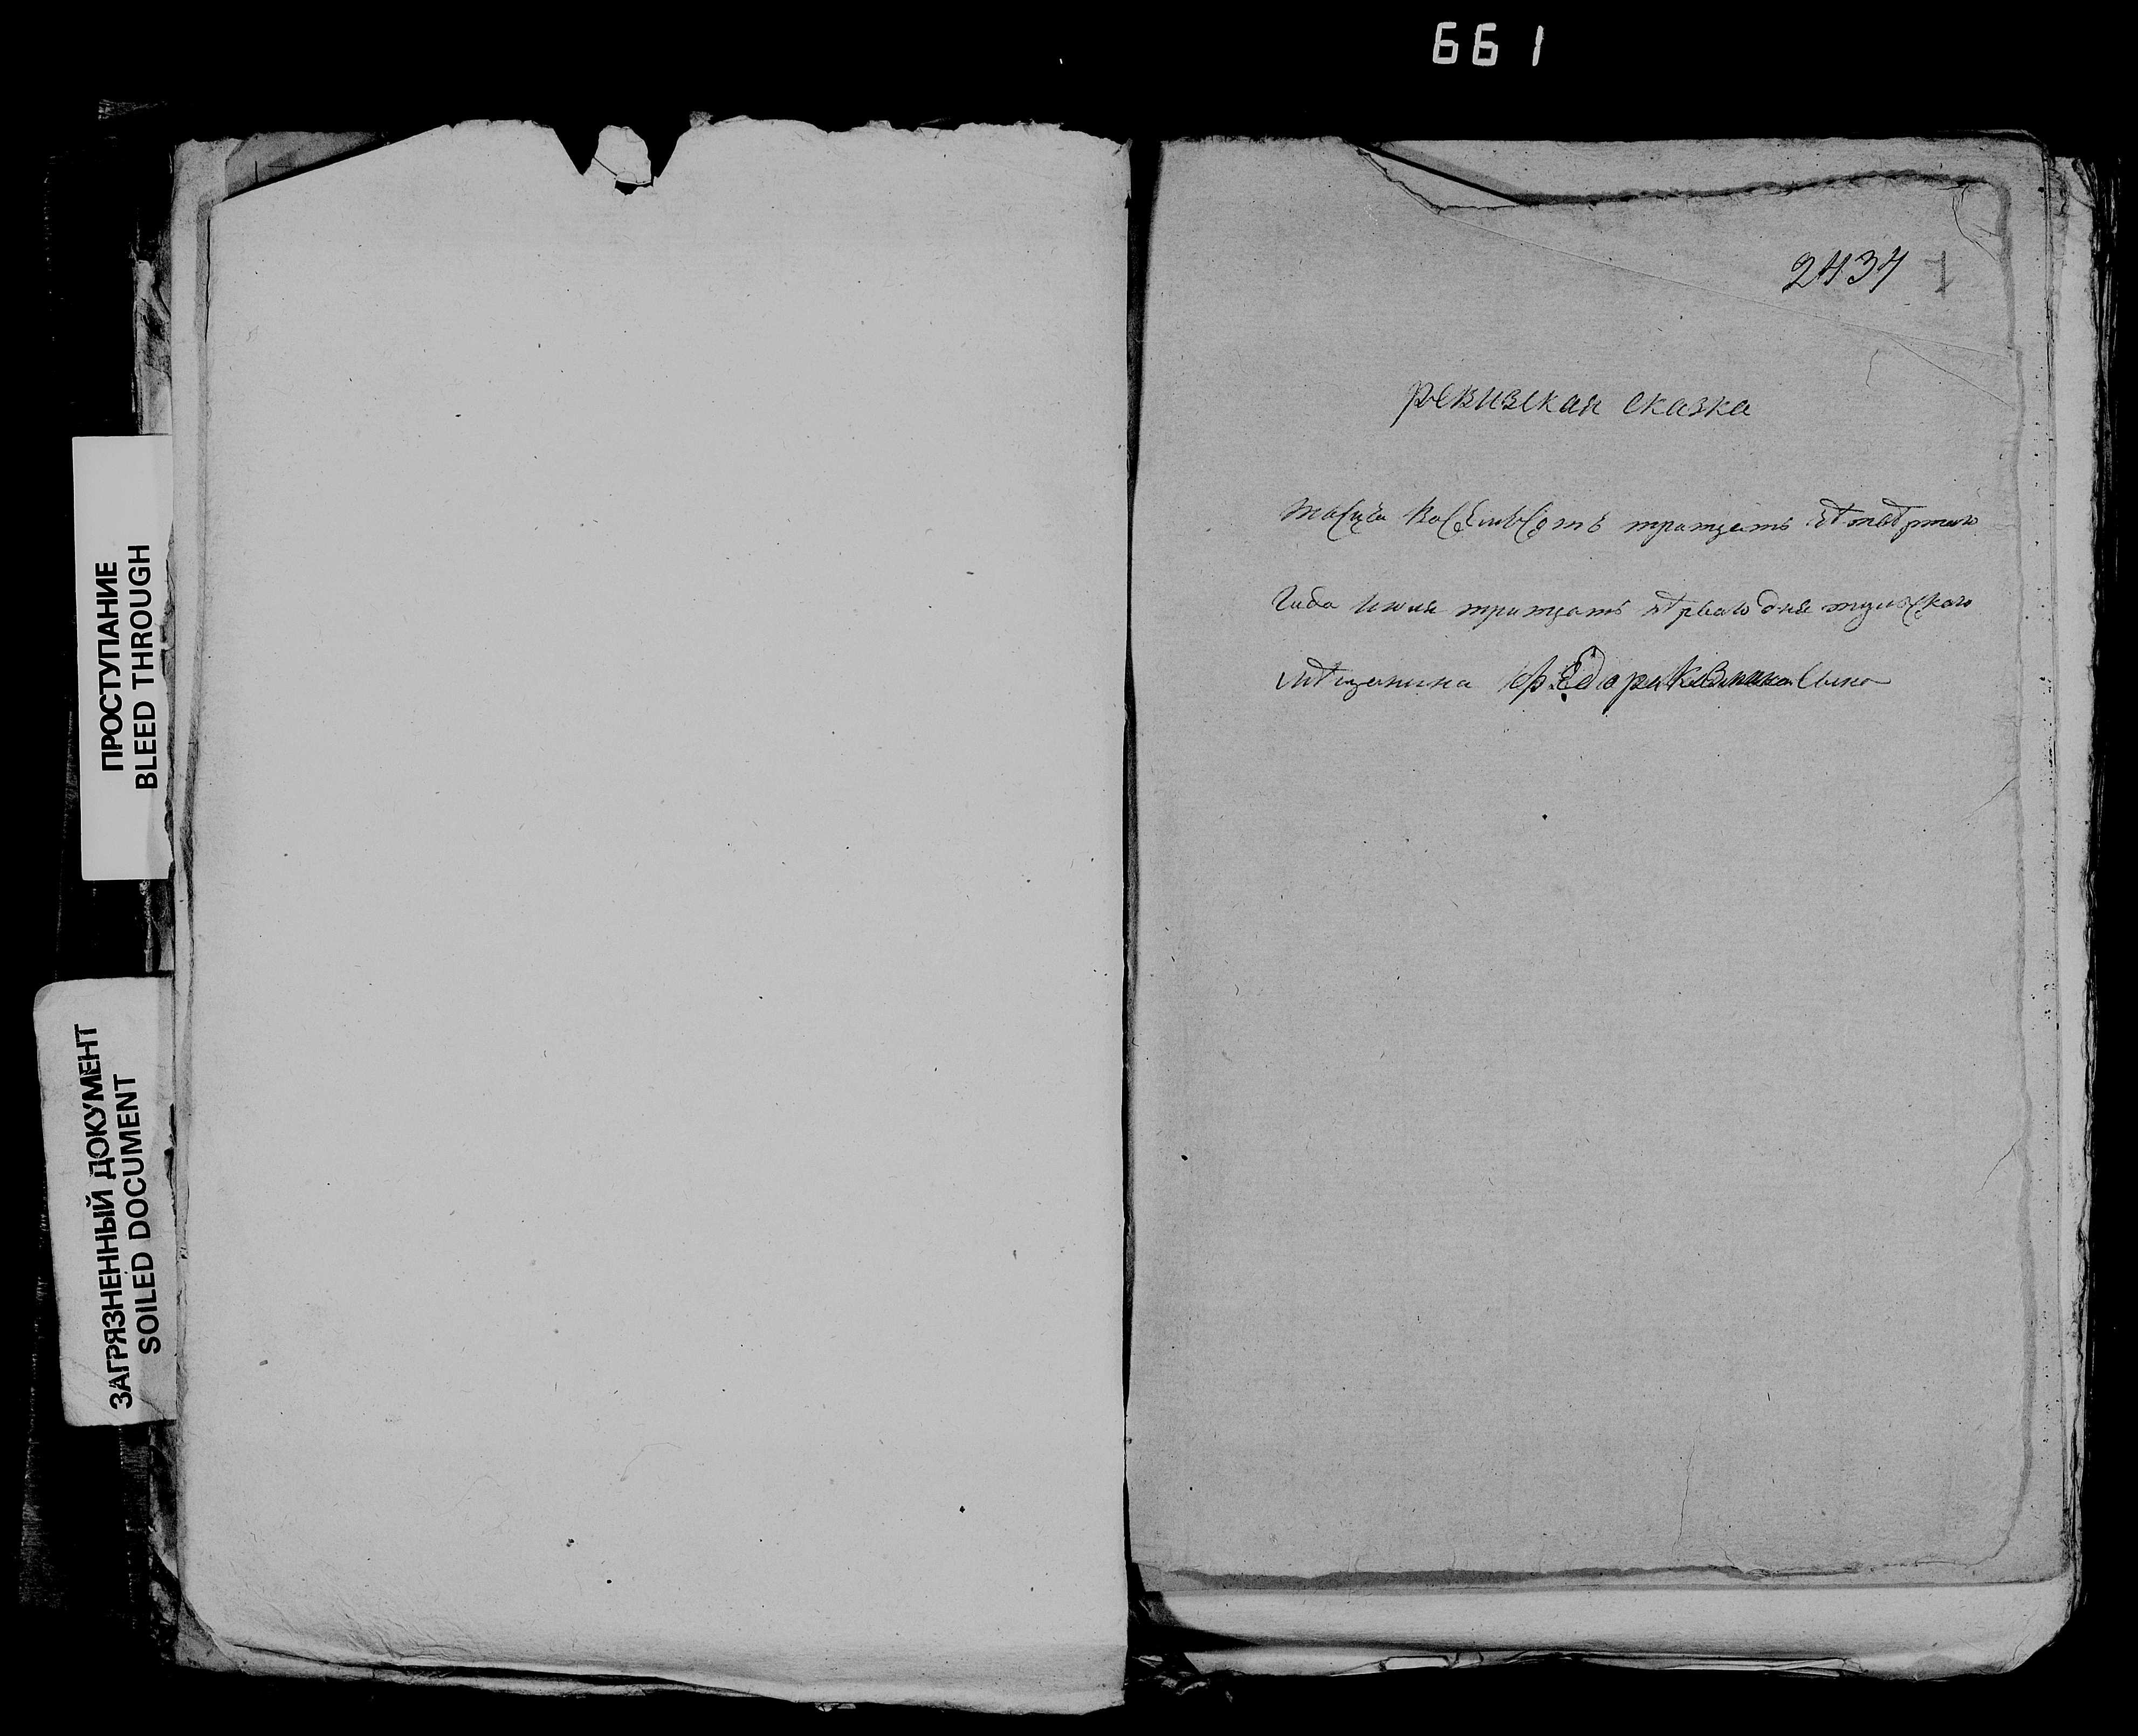 661
ПРОСТУПАНИЕ
BLEED THROUGH
ЗАГРЯЗНЕННЫЙ ДОКУМЕНТ
SOILED DOCUMENT
2434
ревизская сказка
тысяча восемьсотъ тритцать четвертаго
года июля тритцать перваго дня тульскаго
мещанина Федора сына